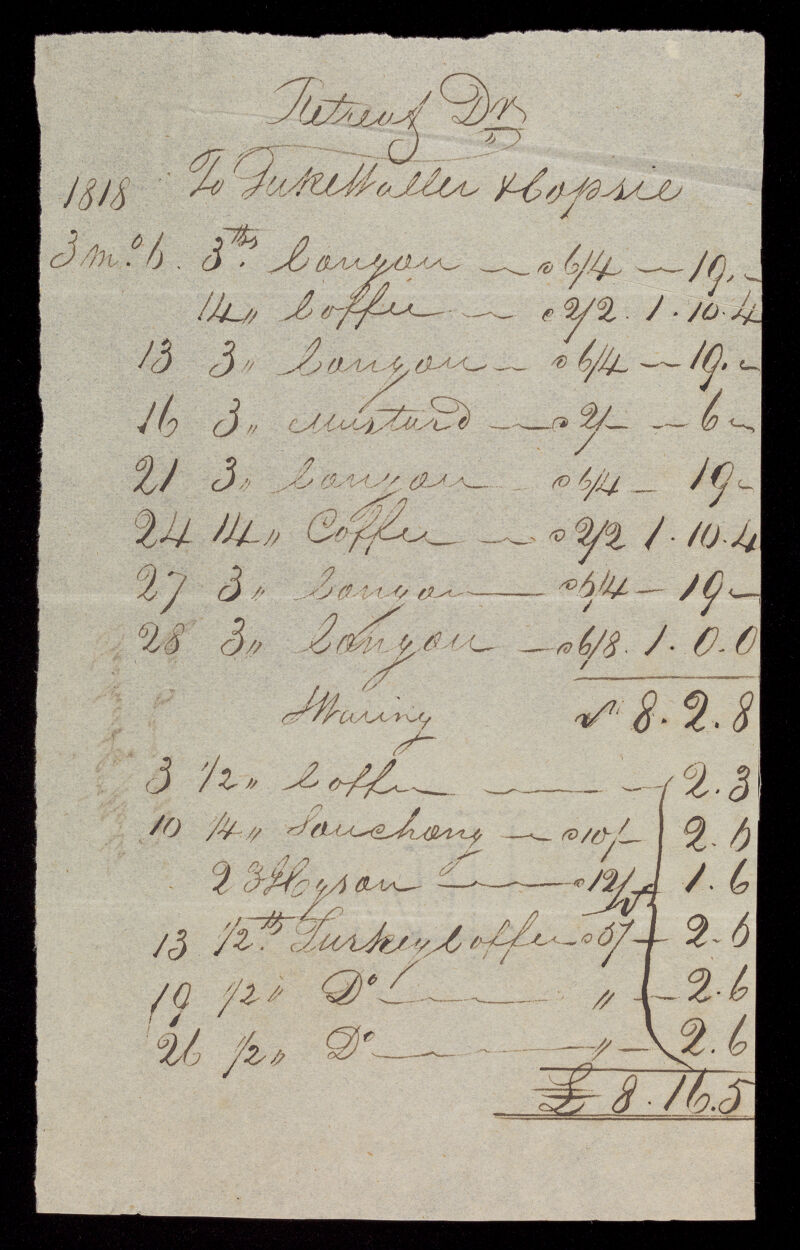 Retreat Dr
1818 To Tuke Waller & Copsie
3 mo. 6. 3 lbs. Congou — @ 6/4 — 19. -
14 " Coffee — @ 2/2. 1. 10. 4
13 3 " Congou — @ 6/4 — 19. -
16 3 " Mustard — @ 2/- — 6 -
21 3 " Congou — @ 6/4 — 19 -
24 14 " Coffee — @ 2/2 1. 10. 4
27 3 " Congou — @ 6/4 — 19 -
28 3 " Congou — @ 6/8. 1. 0. 0
Waring 8. 2. 8
3 1/2 " Coffee — 2. 3
10 1/4 " Souchong — @ 10/- 2. 6
2 3 Hyson — @ 12/ 1. 6
13 1/2 lb. Turkey Coffee @ 5/ — 2. 6
19 1/2 " Do — " — 2. 6
26 1/2 " Do — " — 2. 6
£ 8. 16. 5